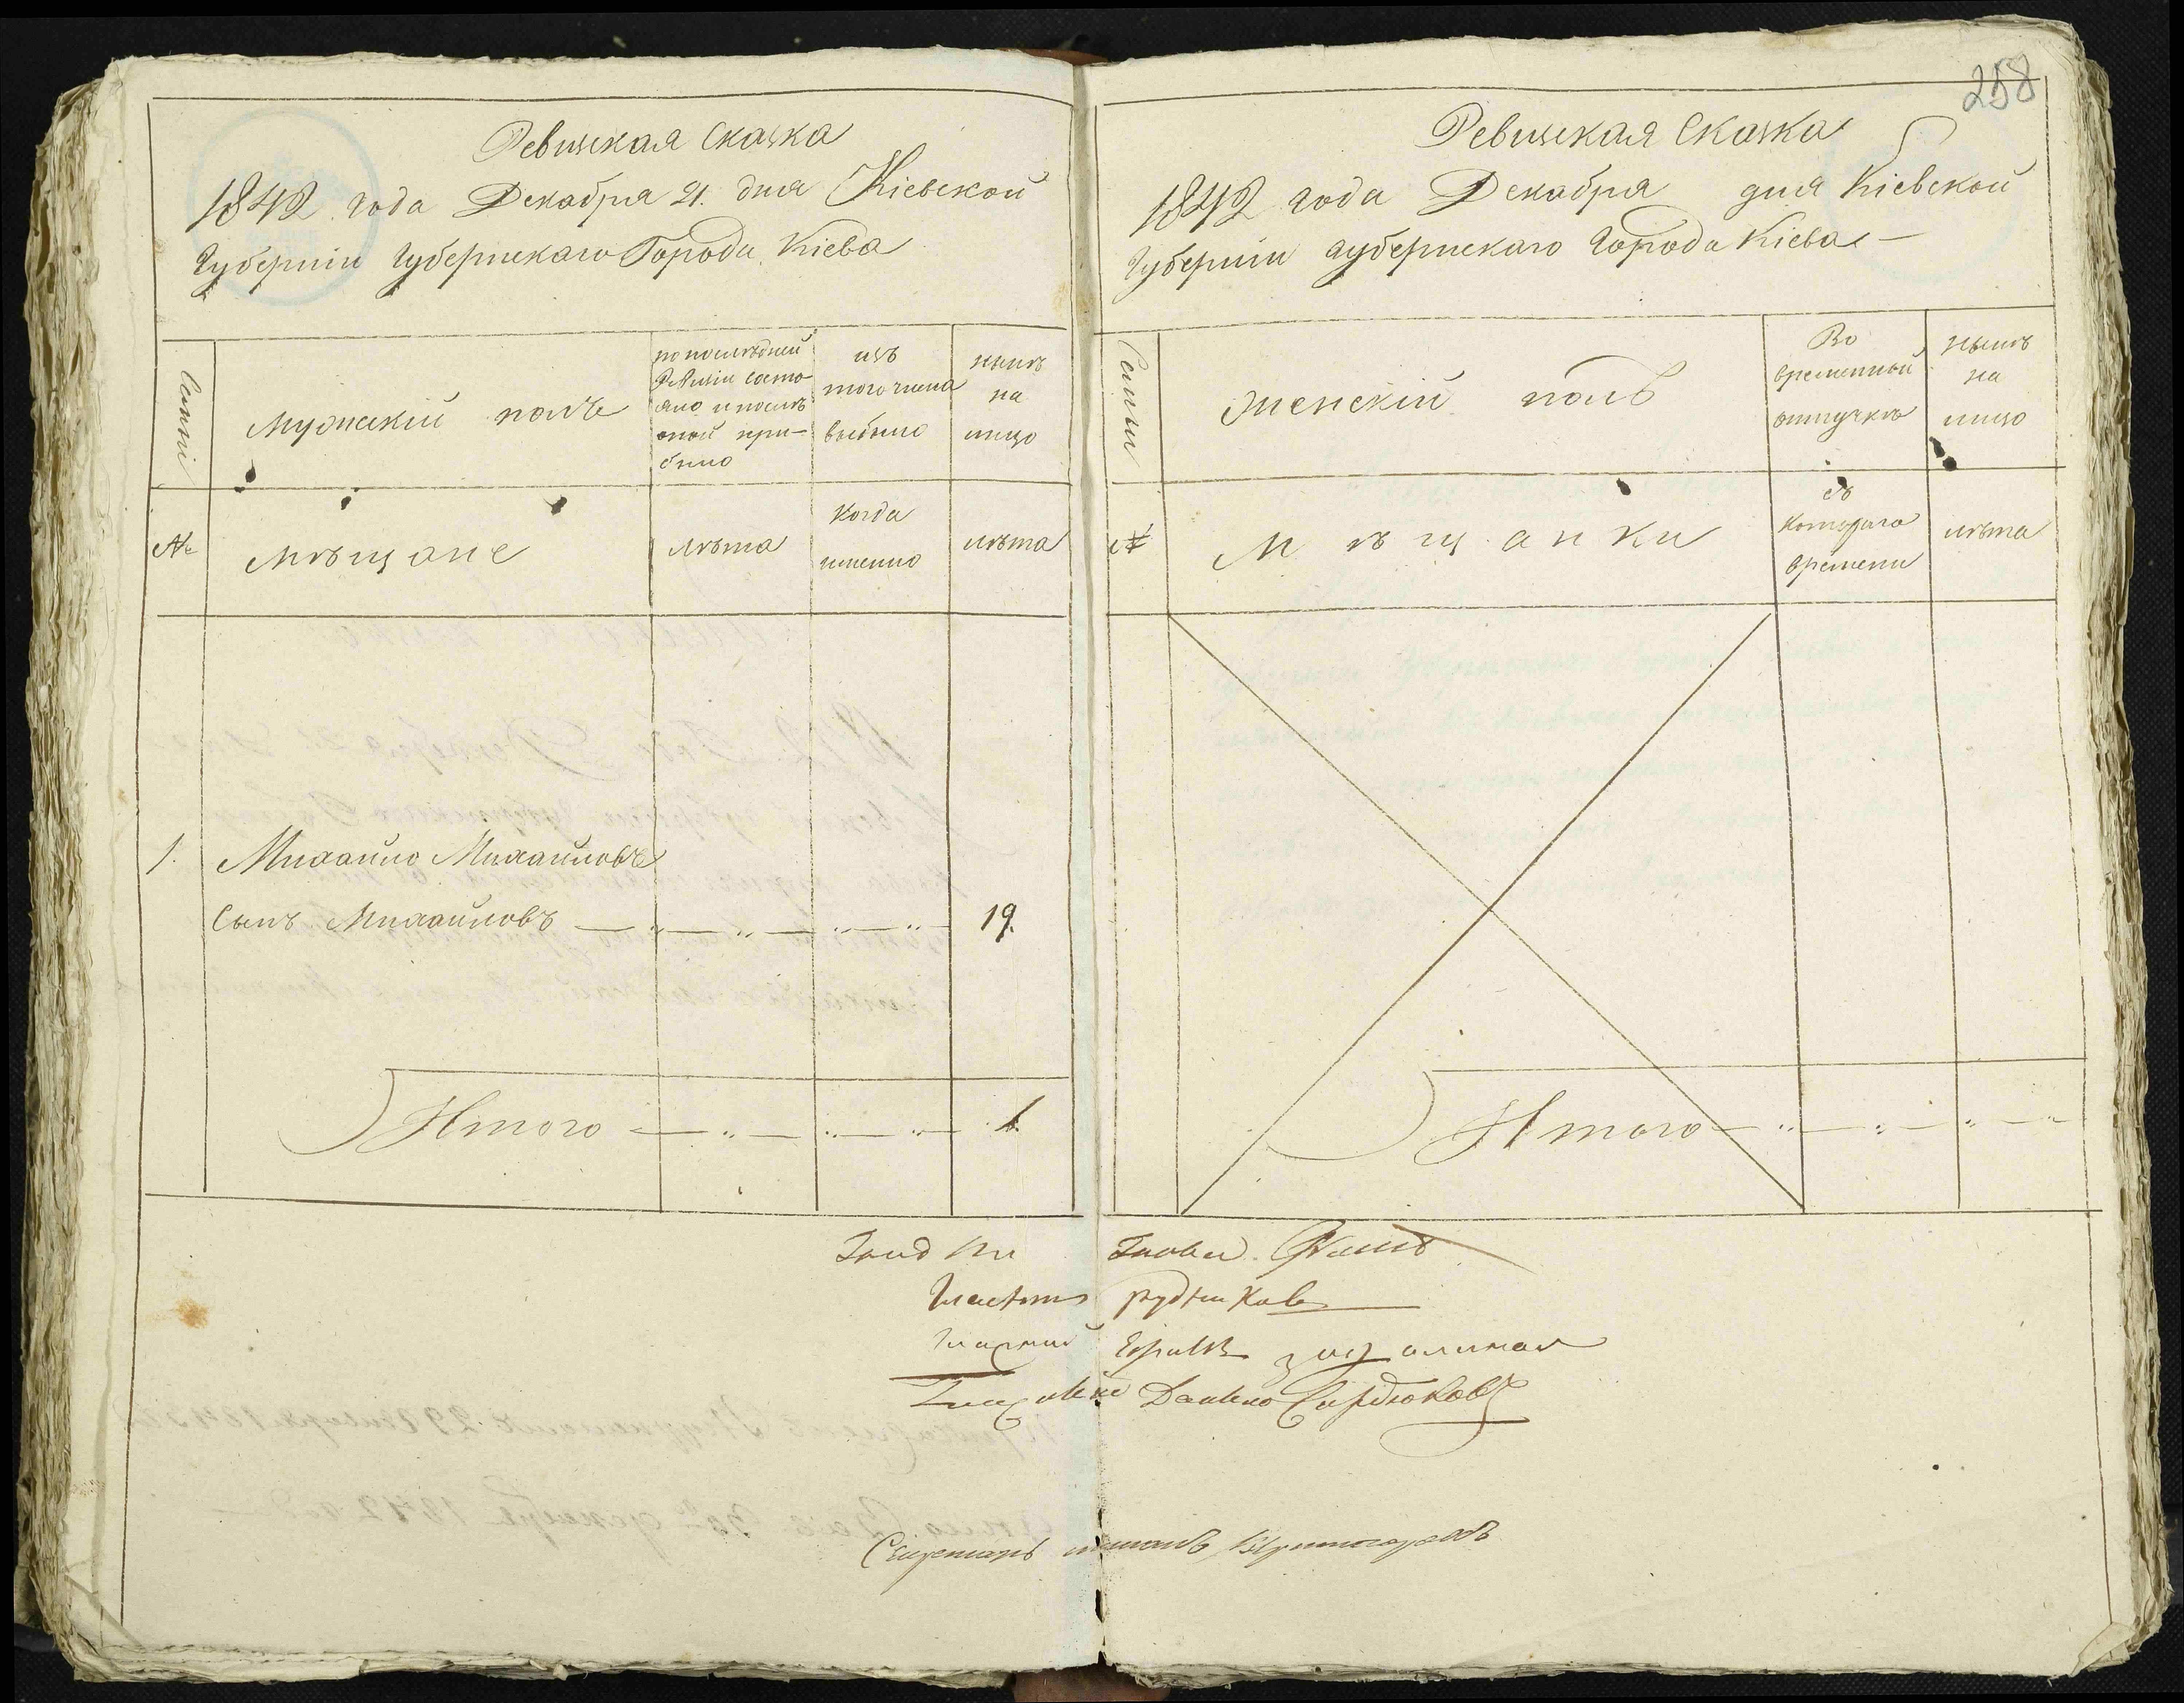 Ревизская Сказка
1842 года Декабря 21. дня Кіевской
Губерніи Губернскаго Города Кіева
Семьи
Мужескій полъ
по последней
Ревизіи состо-
яло и послѣ
оной при-
было
изъ
того числа
выбыло
нынѣ
на
лицо
№
Мѣщане
лѣта
Когда
именно
лѣта
1. Михайло Михайловъ
Сынъ Михайловъ 19.
Итого 1.
258
Ревизская Сказка
1842 года Декабря дня Кіевской
Губерніи Губернскаго Города Кіева
Семьи
Женскій полъ
Во
временной
отлучкѣ
нынѣ
на
лицо
№
Мѣщанки
съ
котораго
времени
лѣта
Итого
Голова
Рудников
Гласный
Данило Сердюковъ
Секретарь